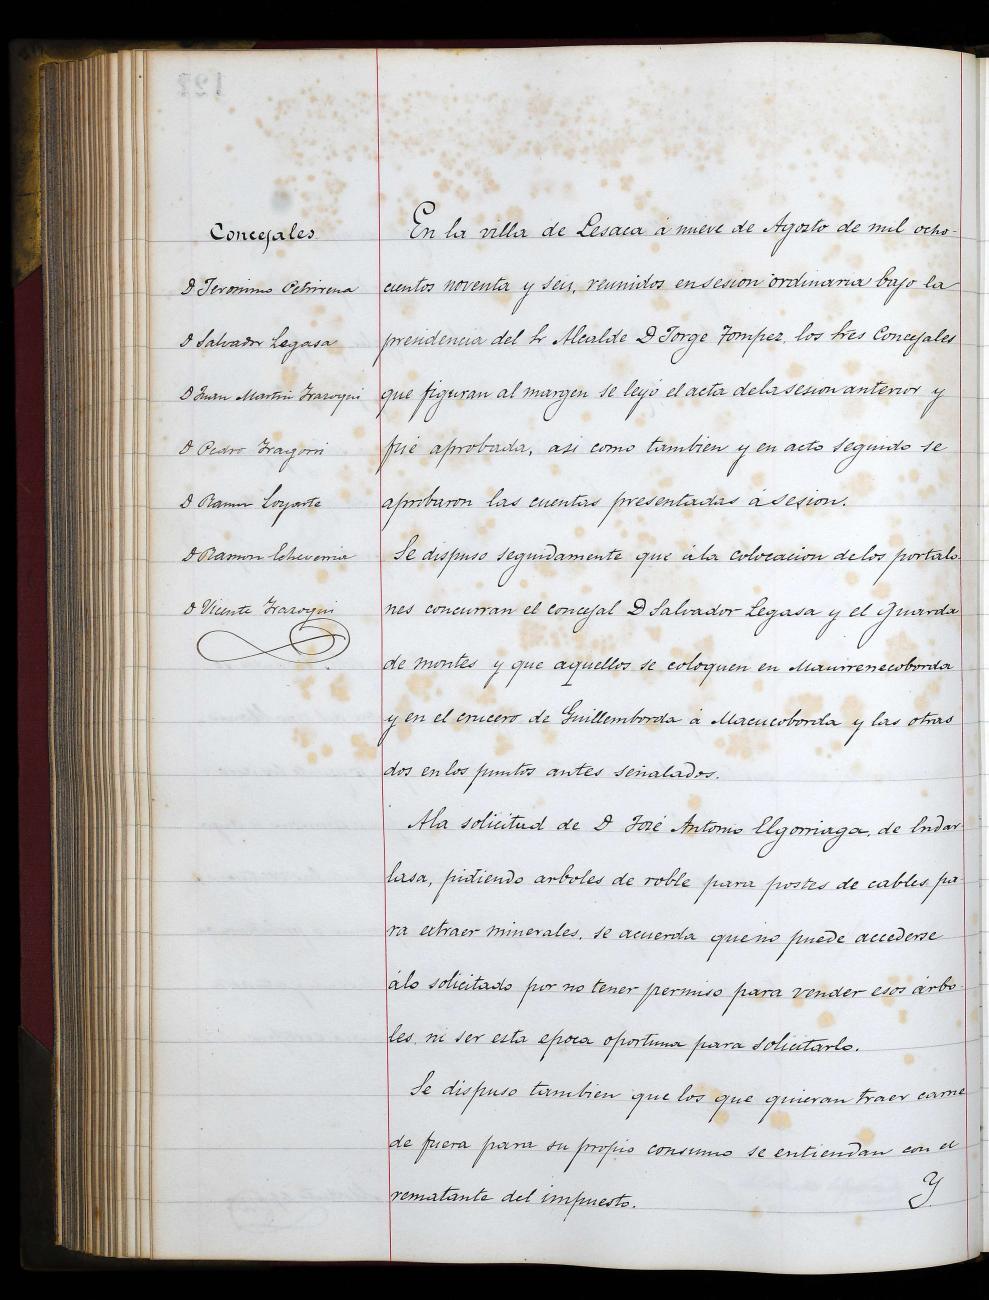 Concejales
D Jeronimo Cehirena
D Salvador Legasa
D Juan Martin Irazoqui
D Pedro Irazorri
D Ramon Loyarte
D Ramon Echeverria
D Vicente Irazoqui
En la villa de Lesaca á nueve de Agosto de mil ocho-
cientos noventa y seis, reunidos en sesion ordinaria bajo la
presidencia del Sr Alcalde D Jorge Tompez, los Sres Concejales
que figuran al margen se leyó el acta de la sesion anterior y
fué aprobada, asi como tambien y en acto seguido se
aprobaron las cuentas presentadas á sesion.
Se dispuso seguidamente que á la colocacion de los portalo-
nes concurran el concejal D Salvador Legasa y el Guarda
de montes y que aquellos se coloquen en Maurrenecoborda
y en el crucero de Guillemborda á Macucoborda y las otras
dos en los puntos antes señalados.
A la solicitud de D José Antonio Elgorriaga, de Endar-
lasa, pidiendo arboles de roble para postes de cables pa-
ra extraer minerales, se acuerda que no puede accederse
á lo solicitado por no tener permiso para vender esos árbo-
les, ni ser esta epoca oportuna para solicitarlo.
Se dispuso tambien que los que quieran traer carne
de fuera para su propio consumo se entiendan con el
rematante del impuesto. Y